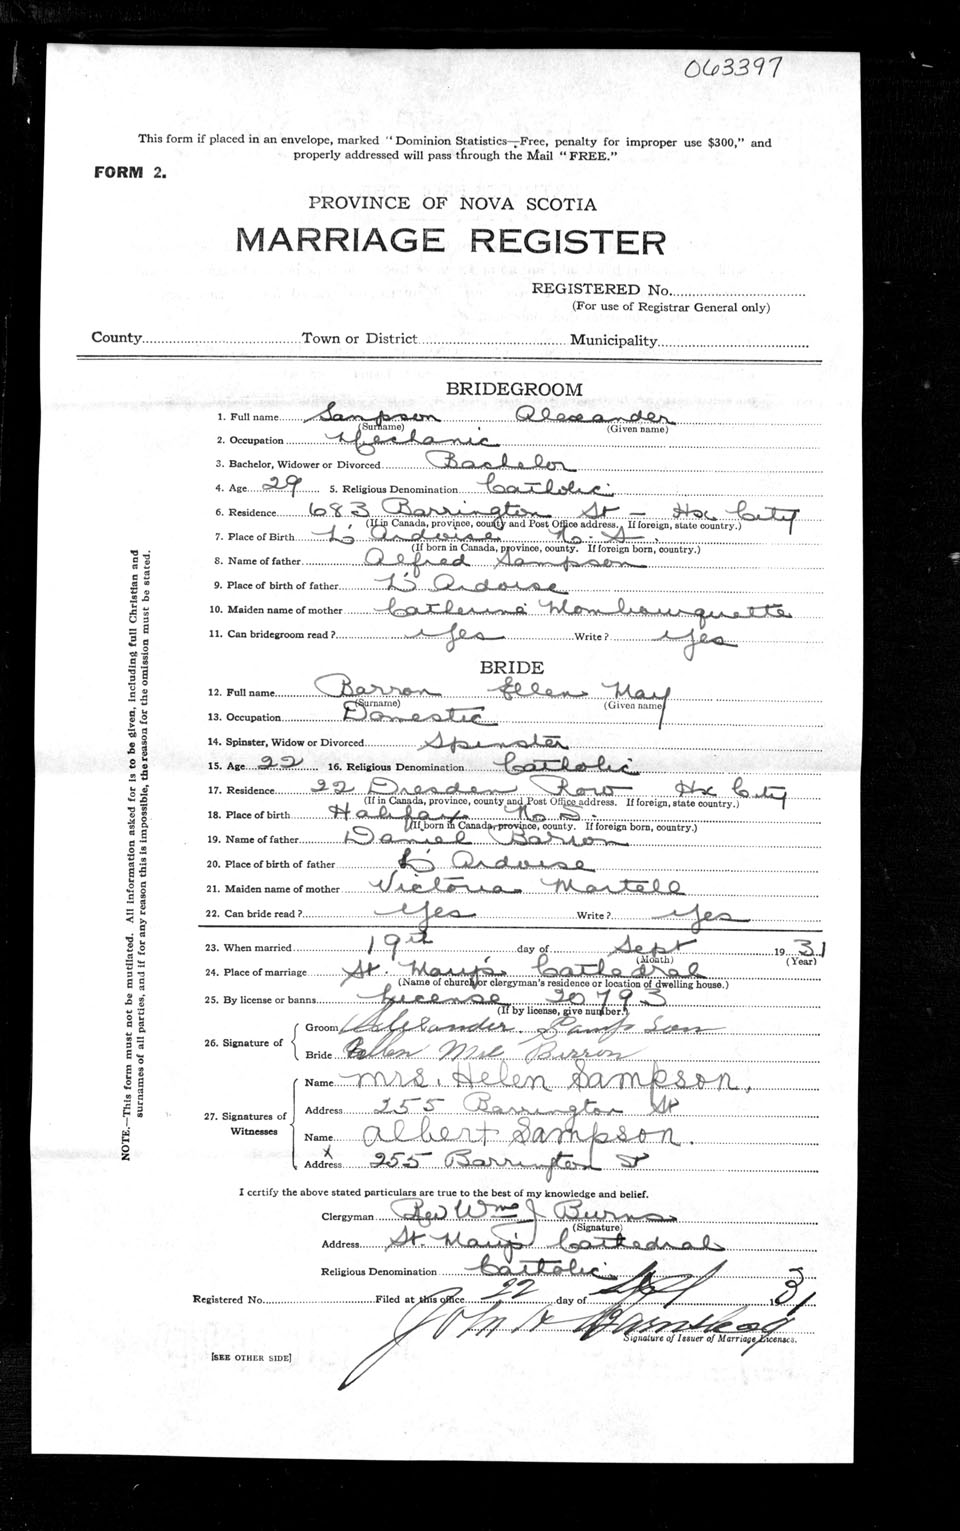 063397
This form if placed in an envelope, marked "Dominion Statistics—Free, penalty for improper use $300," and
properly addressed will pass through the Mail "FREE."
FORM 2.
PROVINCE OF NOVA SCOTIA
MARRIAGE REGISTER
REGISTERED No.
(For use of Registrar General only)
County Town or District Municipality
BRIDEGROOM
1. Full name Sampson Alexander
(Surname) (Given name)
2. Occupation Mechanic
3. Bachelor, Widower or Divorced Bachelor
4. Age 29 5. Religious Denomination Catholic
6. Residence 683 Barrington St — Hx City
(If in Canada, province, county and Post Office address. If foreign, state country.)
7. Place of Birth L'Ardoise N. S.
(If born in Canada, province, county. If foreign born, country.)
8. Name of father Alfred Sampson
9. Place of birth of father L'Ardoise
10. Maiden name of mother Catherine Mombourquette
11. Can bridegroom read? Yes Write? Yes
BRIDE
12. Full name Barron Ellen May
(Surname) (Given name)
13. Occupation Domestic
14. Spinster, Widow or Divorced Spinster
15. Age 22 16. Religious Denomination Catholic
17. Residence 22 Dresden Row Hx City
(If in Canada, province, county and Post Office address. If foreign, state country.)
18. Place of birth Halifax N. S.
(If born in Canada, province, county. If foreign born, country.)
19. Name of father Daniel Barron
20. Place of birth of father L'Ardoise
21. Maiden name of mother Victoria Martell
22. Can bride read? Yes Write? Yes
23. When married 19th day of Sept 1931
(Month) (Year)
24. Place of marriage St. Mary's Cathedral
(Name of church or clergyman's residence or location of dwelling house.)
25. By license or banns License 20793
(If by license, give number.)
26. Signature of
Groom Alexander Sampson
Bride Ellen Mae Barron
27. Signatures of Witnesses
Name Mrs. Helen Sampson.
Address 255 Barrington St
Name Albert Sampson.
X
Address 255 Barrington St
I certify the above stated particulars are true to the best of my knowledge and belief.
Clergyman Rev Wm J Burns
(Signature)
Address St. Mary's Cathedral
Religious Denomination Catholic
Registered No. Filed at this office 22 day of Sept 1931
John
Signature of Issuer of Marriage Licenses.
[SEE OTHER SIDE]
NOTE.—This form must not be mutilated. All information asked for is to be given, including full Christian and
surnames of all parties, and if for any reason this is impossible, the reason for the omission must be stated.